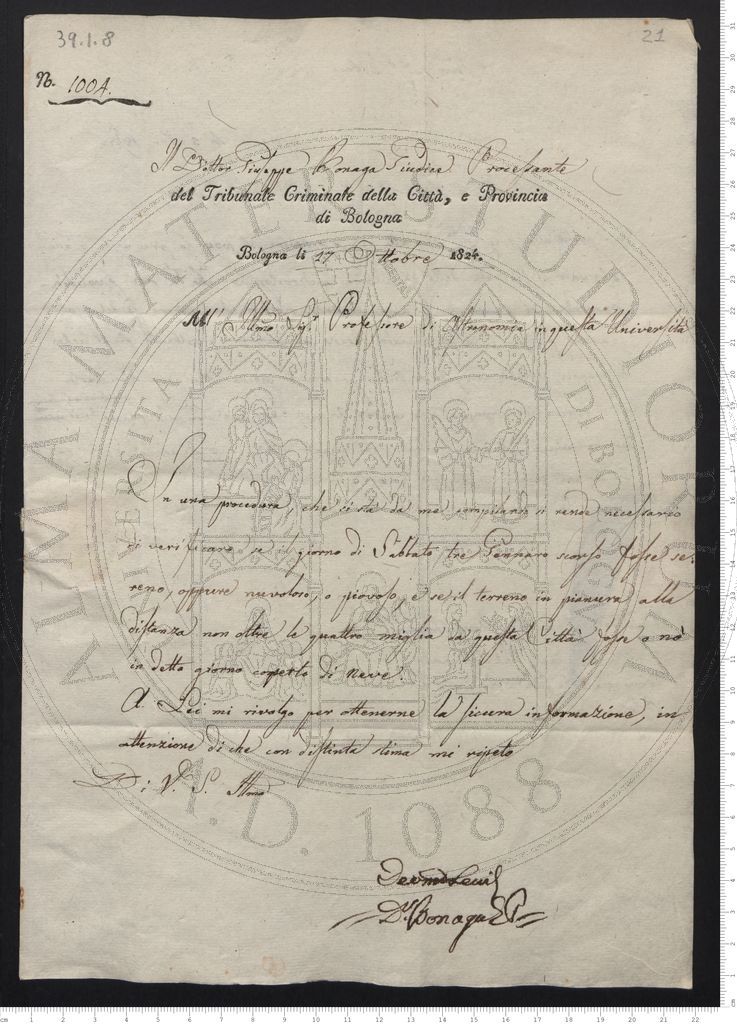 39.1.8
21
N. 1004.
Il Dottor Giuseppe Bonaga Giudice Processante
del Tribunale Criminale della Città, e Provincia
di Bologna
Bologna li 17 Ottobre 1824.
All' Illmo Sigr Professore di Astronomia in questa Università
In una procedura, che si sta da me compilando si rende necessario
di verificare se il giorno di Sabbato tre Gennaro scorso fosse se:
reno, oppure nuvoloso, o piovoso, e se il terreno in pianura alla
distanza non oltre le quattro miglia da questa Città fosse o nò
in detto giorno coperto di neve.
A Lei mi rivolgo per ottenerne la sicura informazione, in
attenzione di che con distinta stima mi ripeto
Di V. S. Illma
Dr Bonaga GP
ALMA MATER STUDIORUM
UNIVERSITA DI BOLOGNA
A.D. 1088